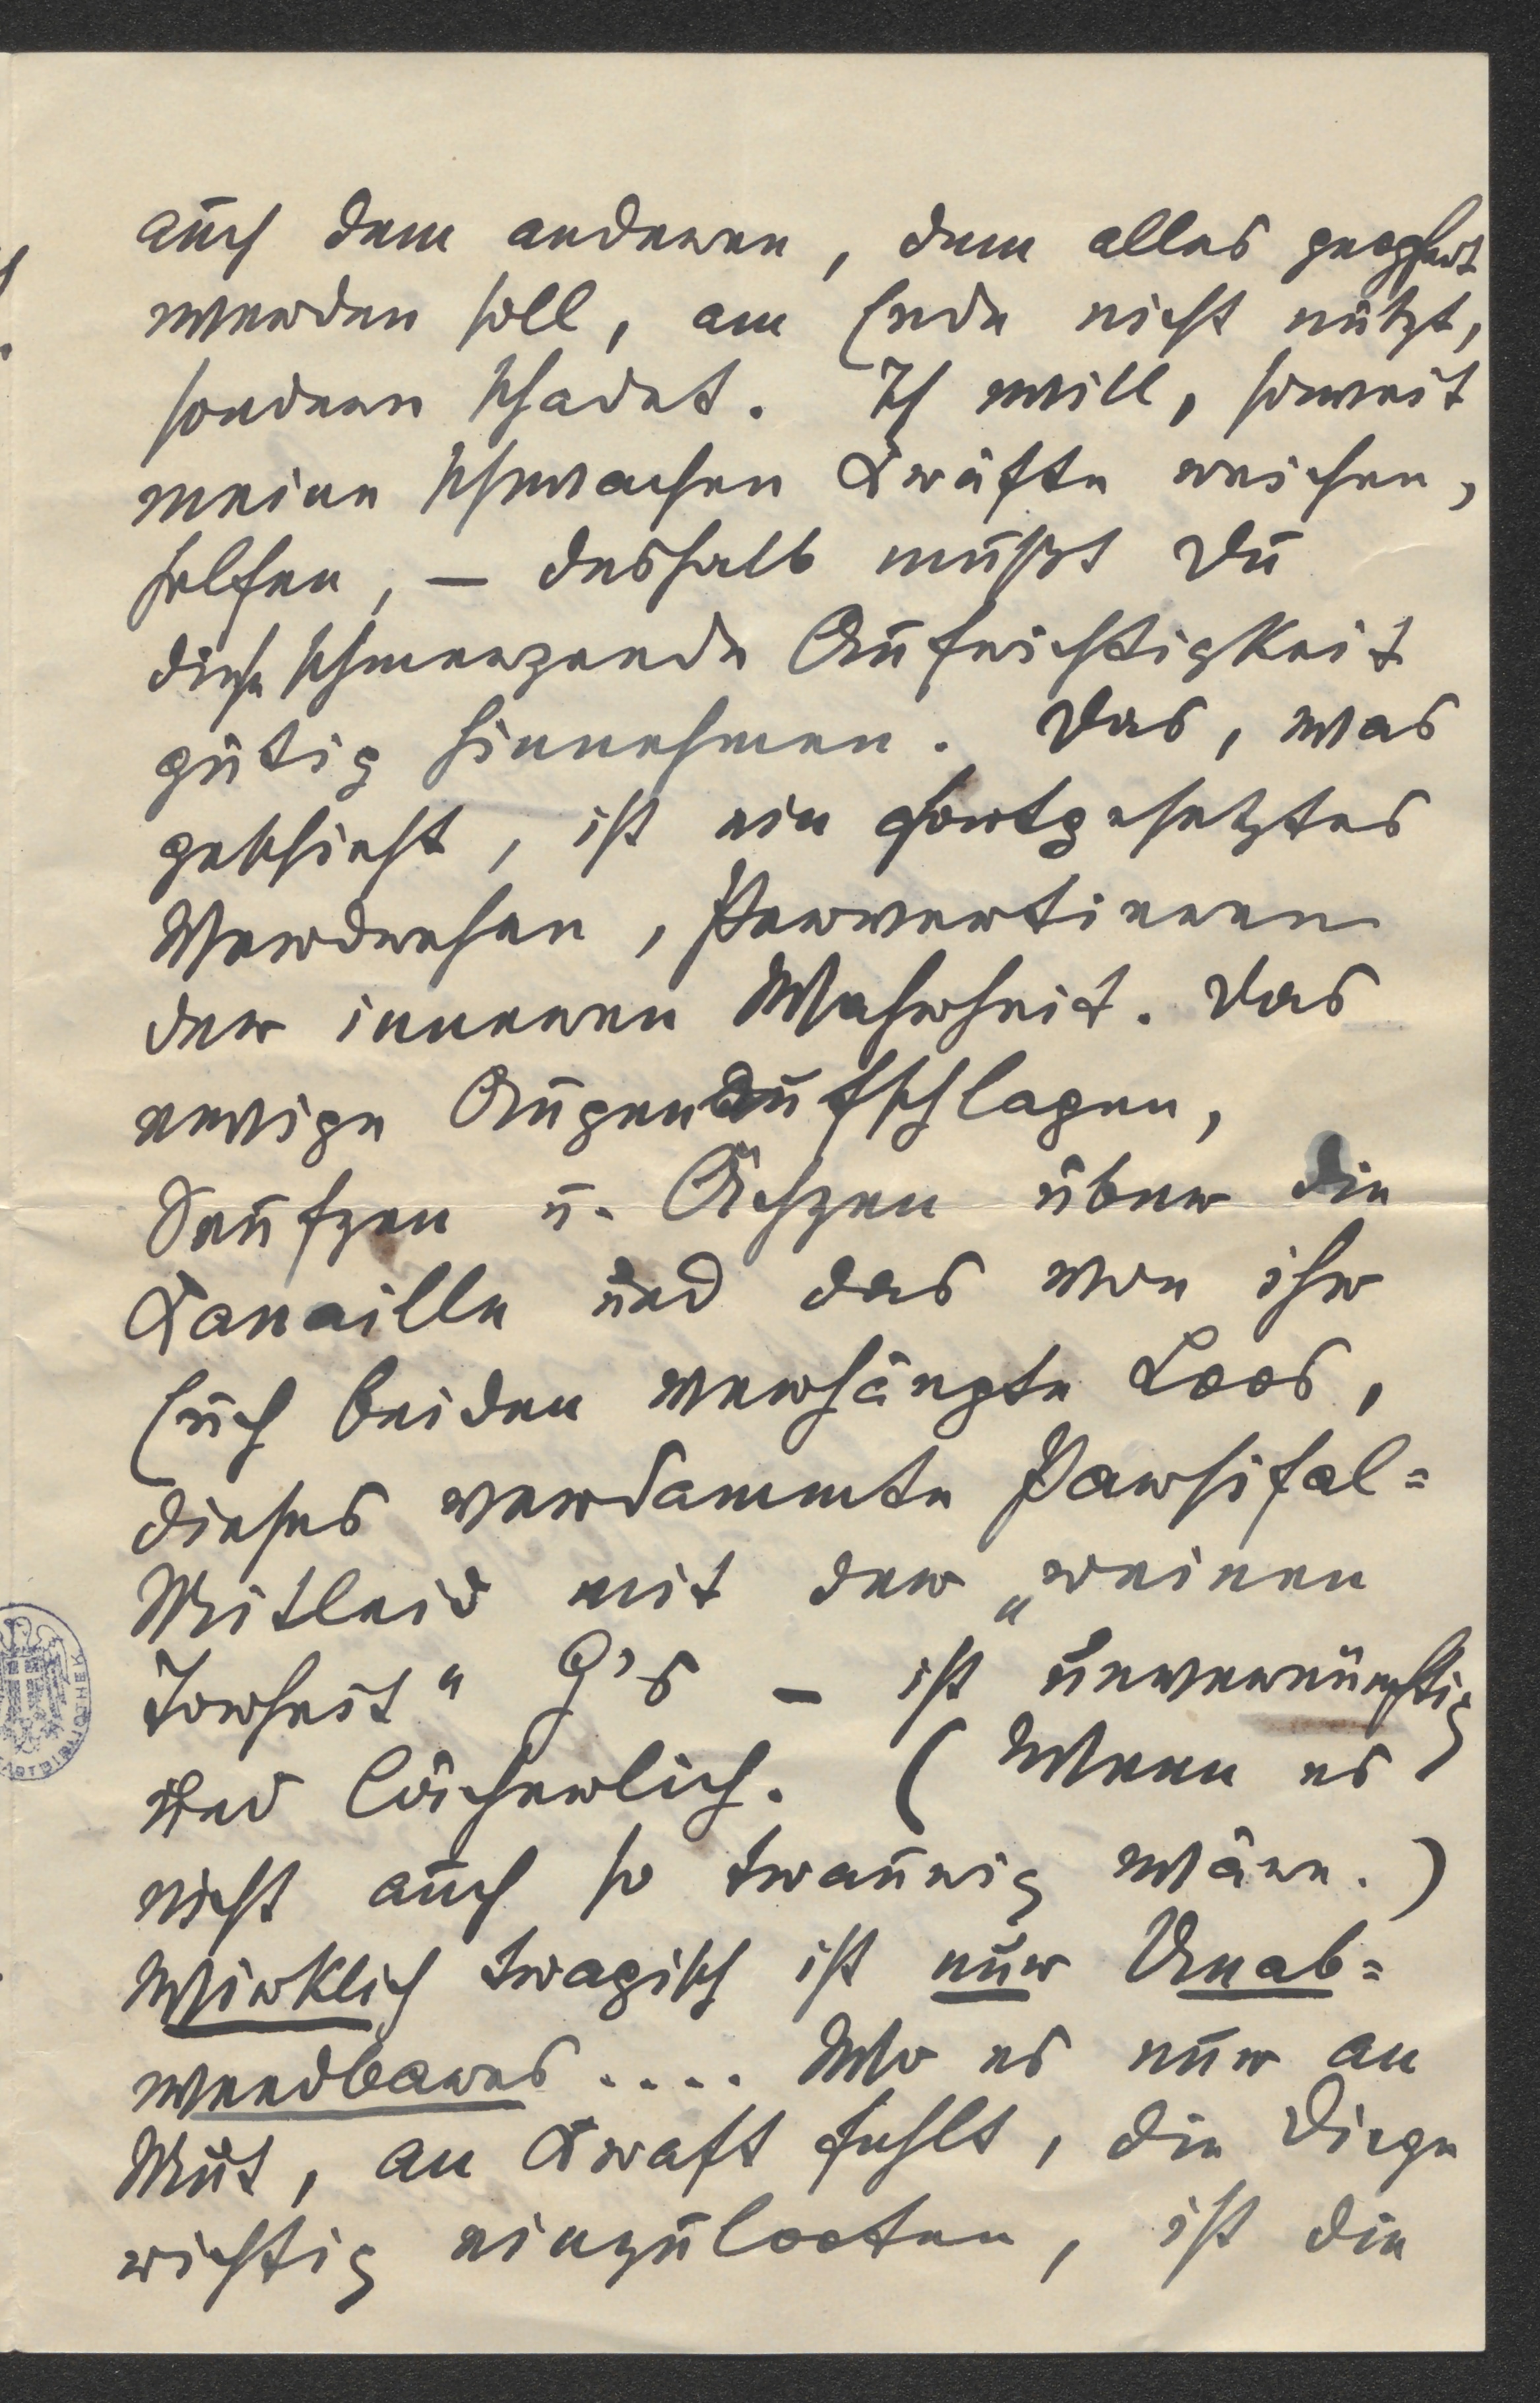 auch dem anderen, dem alles geopfert
werden soll, am Ende nicht nützt,
sondern schadet. Ich will, soweit
meine schwachen Kräfte reichen,
helfen, – deshalb mußt Du
diese schmerzende Aufrichtigkeit
gütig hinnehmen. Das, was
geschieht, ist ein fortgesetztes
Verdrehen, Pervertieren
der inneren Wahrheit. Das
ewige Augenaufschlagen,
Seufzen u. Ächzen über die
Kanaille und das von ihr
Euch beiden verhängte Loos,
dieses verdammte Parsifal=
Mitleid mit der „reinen
Torheit" G's – ist unvernünftig
und lächerlich. (Wenn es
nicht auch so traurig wäre.)
Wirklich tragisch ist nur Unab=
wendbares .... Wo es nur an
Mut, an Kraft fehlt, die Dinge
richtig einzuloten, ist die